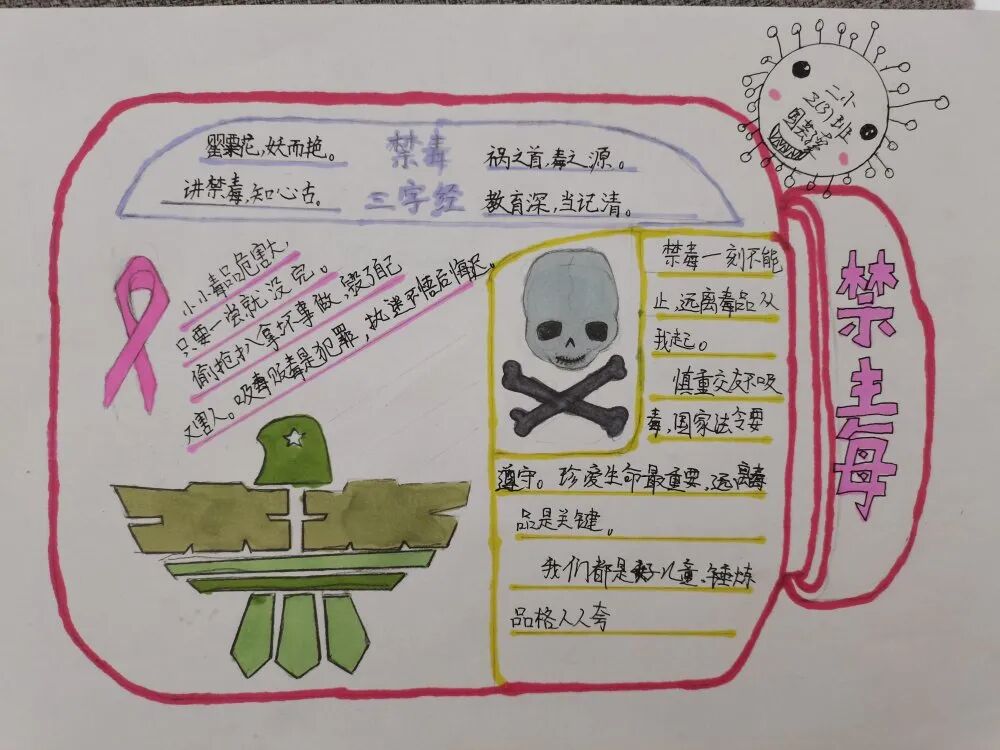 二小
三(3)班
禁毒
三字经
罂粟花,妖而艳。
祸之首,毒之源。
讲禁毒,知心古。
教育深,当记清。
小小毒品危害大,
只要一尝就没完。
偷抢扒拿坏事做,毁了自己
又害人。吸毒贩毒是犯罪,执迷不悟后悔迟。
禁毒一刻不能
止,远离毒品从
我起。
慎重交友不吸
毒,国家法令要
遵守。珍爱生命最重要,远离毒
品是关键。
我们都是好儿童,锤炼
品格人人夸
禁毒